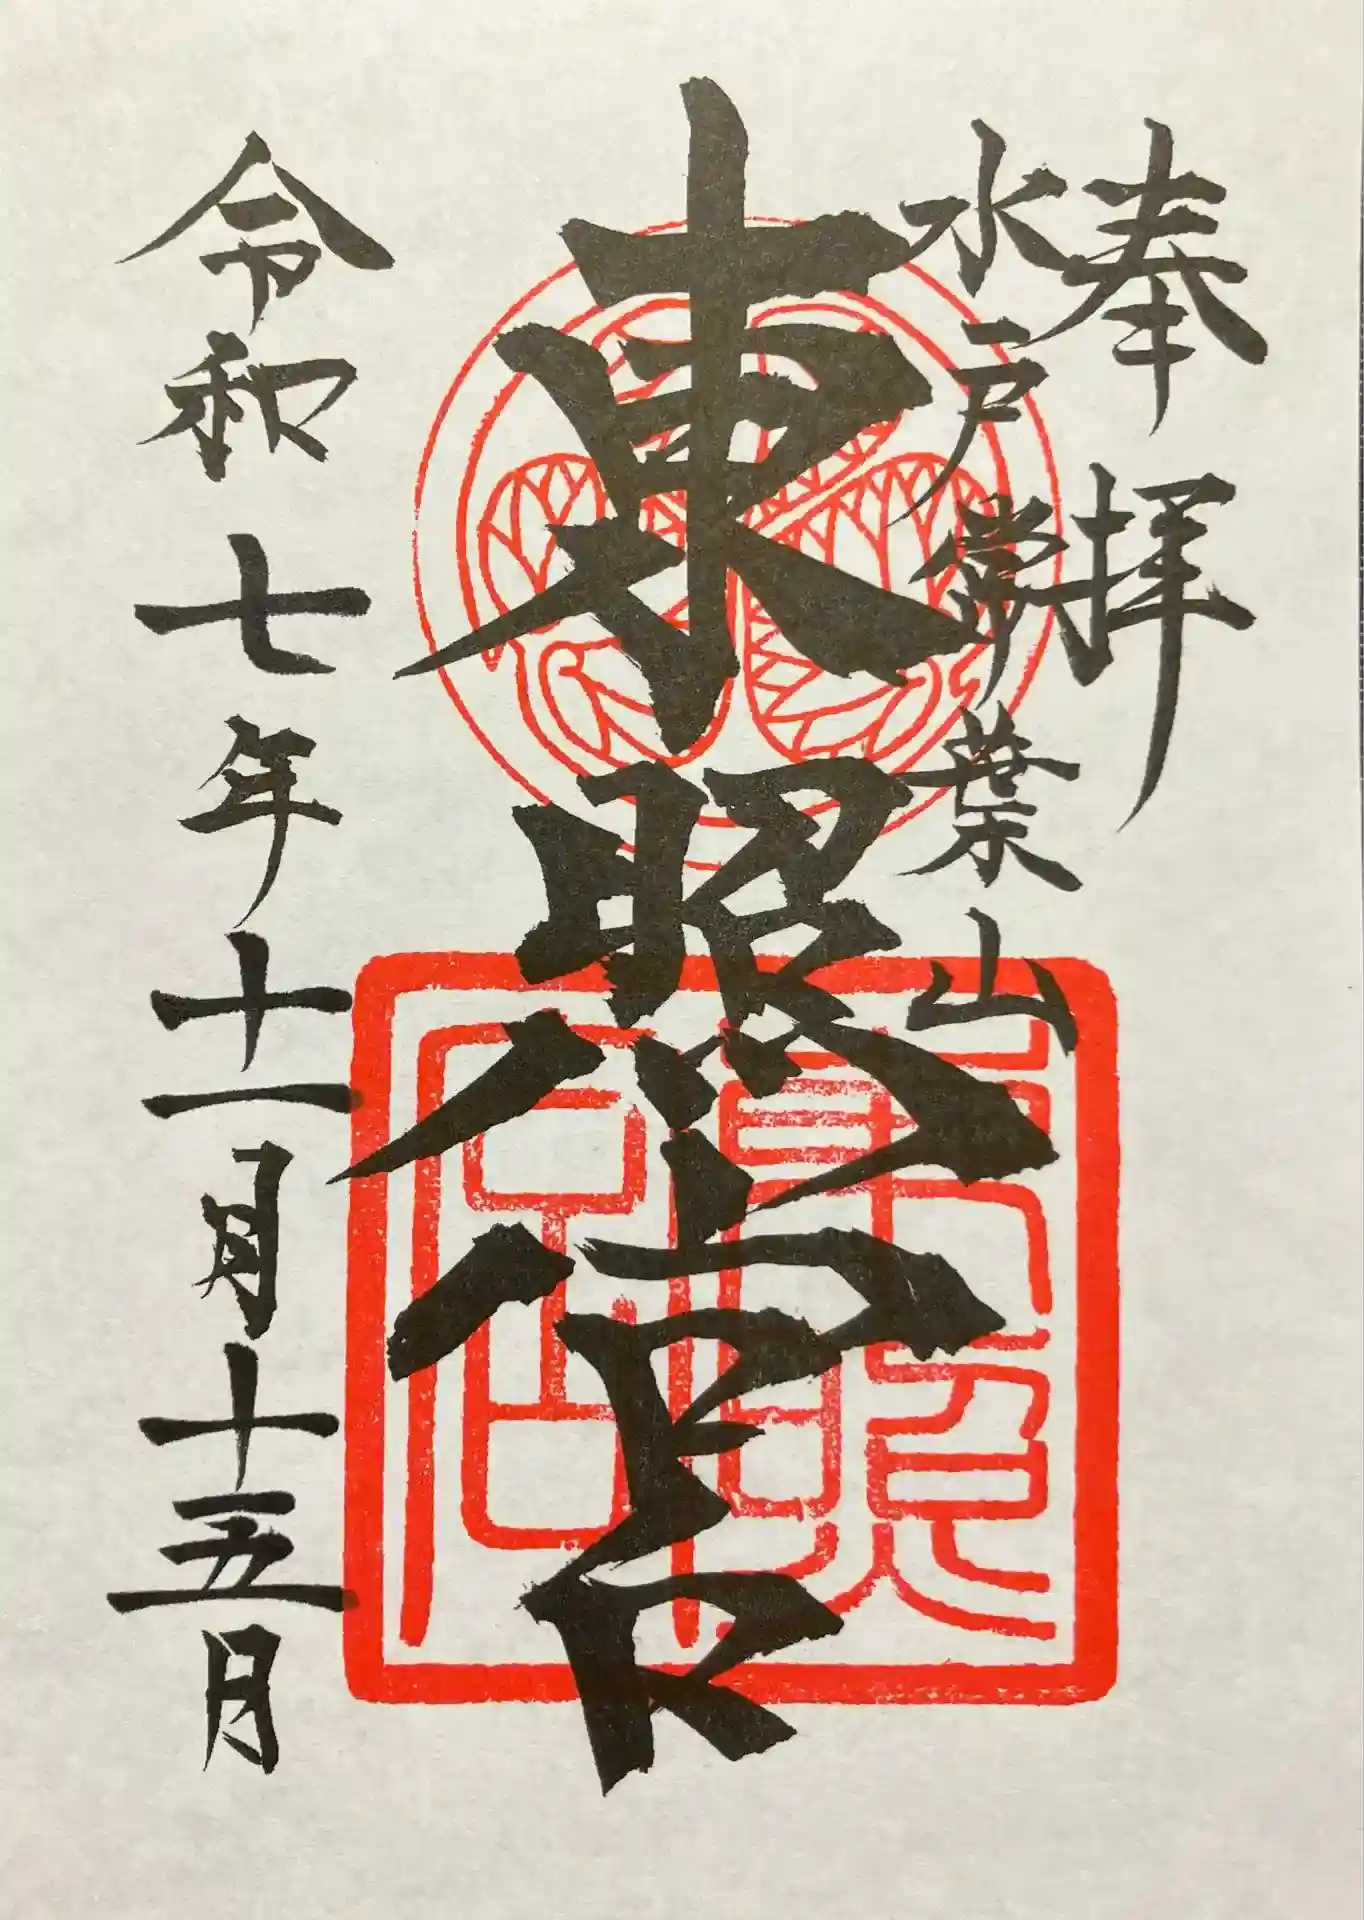 奉拝
水戸常葉山
東照宮
東照宮
令和七年十一月十五日